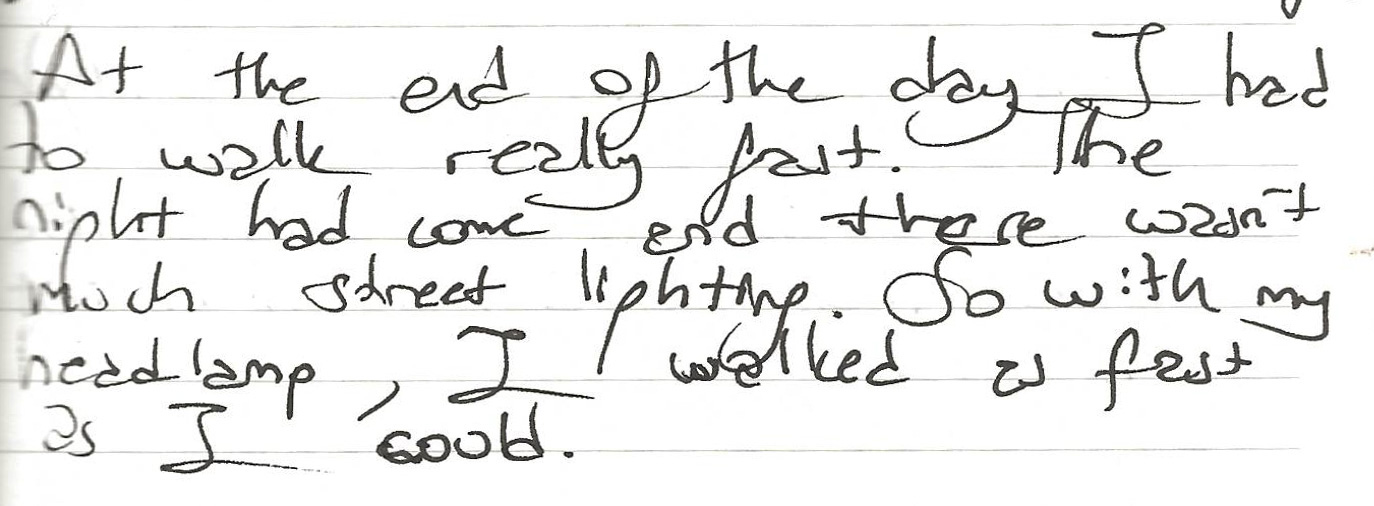 At the end of the day I had
to walk really fast. The
night had come and there wasn't
much street lighting. So with my
headlamp, I walked as fast
as I could.